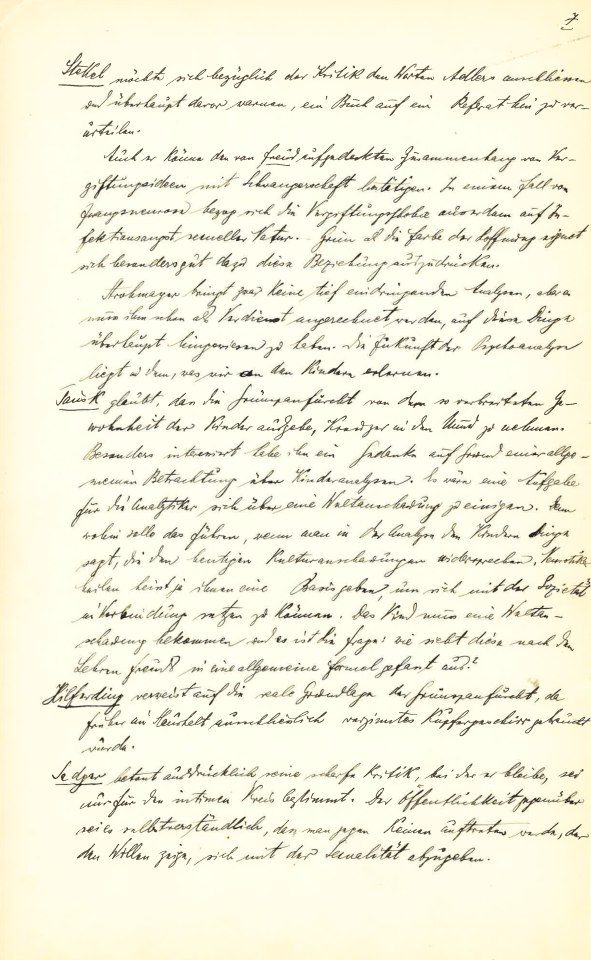 7
Stekel möchte sich bezüglich der Kritik den Worten Adlers anschliessen
und überhaupt davor warnen, ein Buch auf ein Referat hin zu ver-
urteilen.
Auch er könne den von Freud aufgedeckten Zusammenhang von Ver-
giftungsideen mit Schwangerschaft bestätigen. In einem Fall von
Zwangsneurose bezog sich die Vergiftungsphobie ausserdem auf In-
fektionsangst sexueller Natur. Grün als die Farbe der Hoffnung eignet
sich besonders gut dazu diese Beziehung auszudrücken.
Strohmayer bringt zwar keine tief eindringenden Analysen, aber es
muss ihm schon als Verdienst angerechnet werden, auf diese Dinge
überhaupt hingewiesen zu haben. Die Zukunft der Psychoanalyse
liegt in dem, was wir an den Kindern erlernen.
Tausk glaubt, dass die Grünspanfurcht von der so verbreiteten Ge-
wohnheit der Kinder ausgehe, Kreuzer in den Mund zu nehmen.
Besonders interessiert habe ihn ein Gedanke auf Grund einer allge-
meinen Betrachtung über Kinderanalysen. Es wäre eine Aufgabe
für die Analytiker sich über eine Weltanschauung zu einigen. Denn
wohin solle das führen, wenn man in der Analyse den Kindern Dinge
sagt, die den heutigen Kulturanschauungen widersprechen. Neurotiker
heilen heisst ja ihnen eine Basis geben um sich mit der Sozietät
in Verbindung setzen zu können. Das Kind muss eine Weltan-
schauung bekommen und es ist die Frage: wie sieht diese nach den
Lehren Freuds in eine allgemeine Formel gefasst aus?
Hilferding verweist auf die reale Grundlage der Grünspanfurcht, da
früher im Haushalt ausschliesslich verzinntes Kupfergeschirr gebraucht
wurde.
Sadger betont ausdrücklich seine scharfe Kritik, bei der er bleibe, sei
nur für den intimen Kreis bestimmt. Der Öffentlichkeit gegenüber
sei es selbstverständlich, dass man gegen keinen auftreten werde, der
den Willen zeige, sich mit der Sexualität abzugeben.